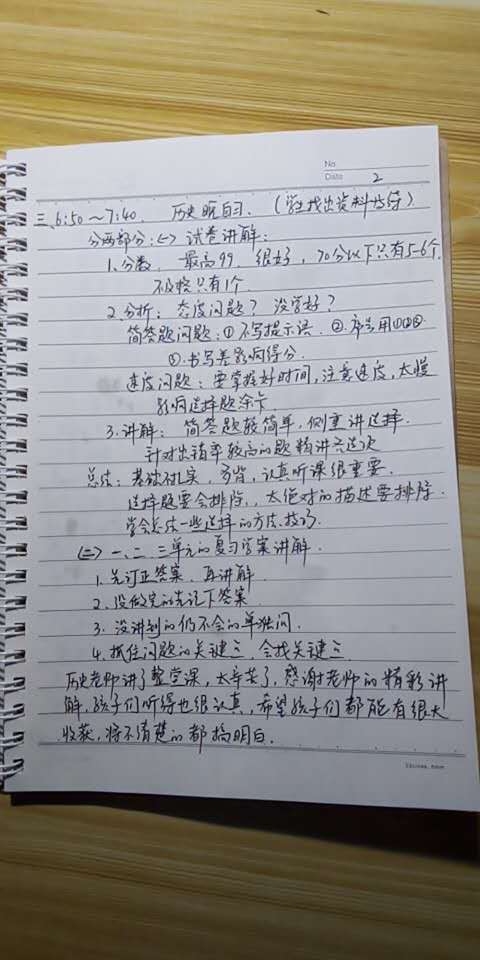 No
Date 2
三、6:50～7:40. 历史晚自习. (学生找出资料等待)
分两部分:(一) 试卷讲解:
1、分数. 最高99. 很好, 70分以下只有5-6个.
不及格只有1个.
2、分析: 态度问题? 没学好?
简答题问题: ① 不写提示语. ②. 序号用①②③.
③. 书写差影响得分.
速度问题: 要掌握好时间, 注意速度, 太慢
影响选择题涂卡
3、讲解: 简答题较简单, 侧重讲选择.
针对出错率较高的题精讲
总结: 基础不扎实, 多背, 认真听课很重要.
选择题要会排除, 太绝对的描述要排除.
学会总结一些选择的方法. 技巧.
(二) 一、二、三单元的复习学案讲解.
1、先订正答案, 再讲解.
2、没做完的先记下答案
3、没讲到的仍不会的单独问.
4、抓住问题的关键字, 会找关键字
历史老师讲了整堂课, 太辛苦了, 感谢老师的精彩讲
解, 孩子们听得也很认真, 希望孩子们都能有很大
收获, 将不清楚的都搞明白.